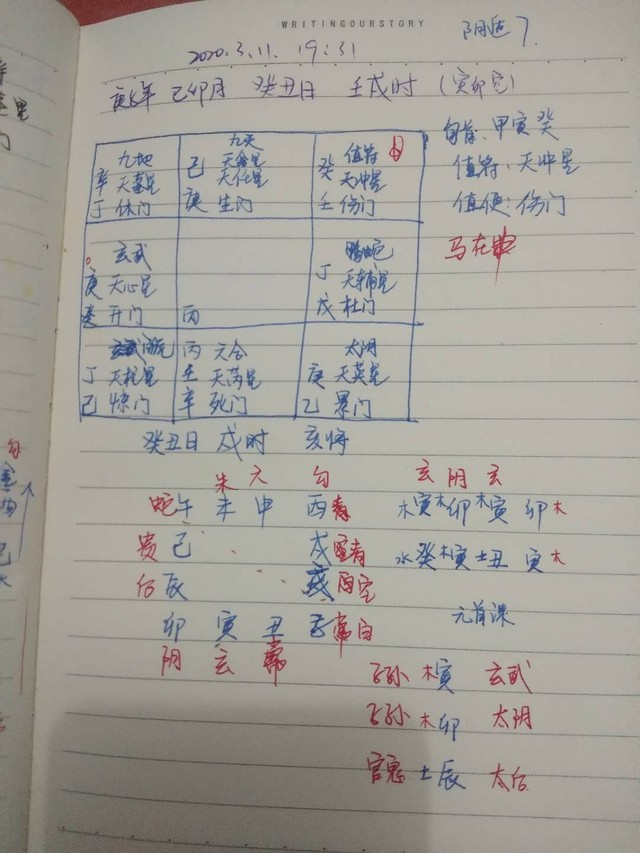 WRITINGOURSTORY
阴遁7.
2020.3.11. 19:31
庚子年 己卯月 癸丑日 壬戌时 (寅卯空)
旬首:甲寅癸
值符:天冲星
值使:伤门
马在申
九地
辛 天蓬星
丁 休门
九天
己 天禽星
天任星
庚 生门
值符
癸 天冲星
壬 伤门
玄武
庚 天心星
癸 开门
丙
螣蛇
丁 天辅星
戊 杜门
丁 天柱星
己 惊门
丙 六合
壬 天芮星
辛 死门
太阴
庚 天英星
乙 景门
癸丑日 戌时 亥将
朱 六 勾 玄 阴 玄
蛇 午 未 申 酉 青 木寅 木卯 木寅 卯木
贵 巳 戌 水癸 木寅 土丑 寅木
后 辰 空
元首课
卯 寅 丑 子
阴 玄 常
子孙 木寅 玄武
子孙 木卯 太阴
官鬼 土辰 太后